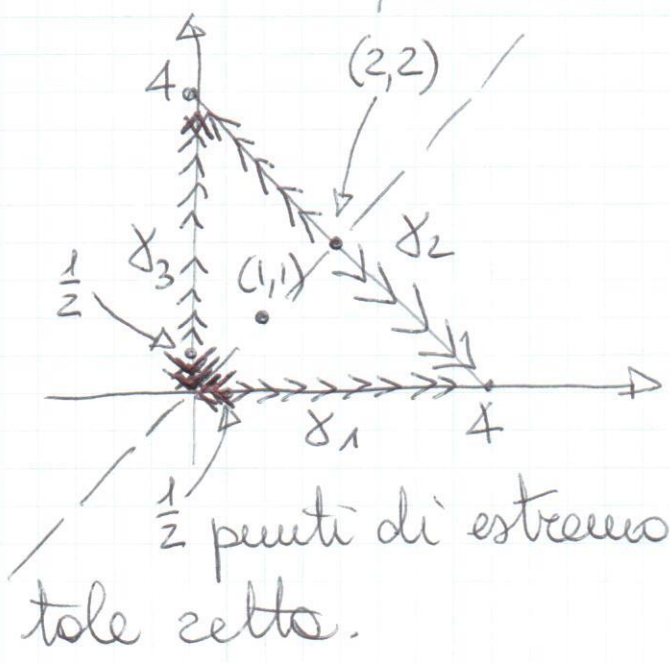 4
(2,2)
γ2
γ3
(1,1)
1/2
γ1
4
1/2 punti di estremo
tale retta.